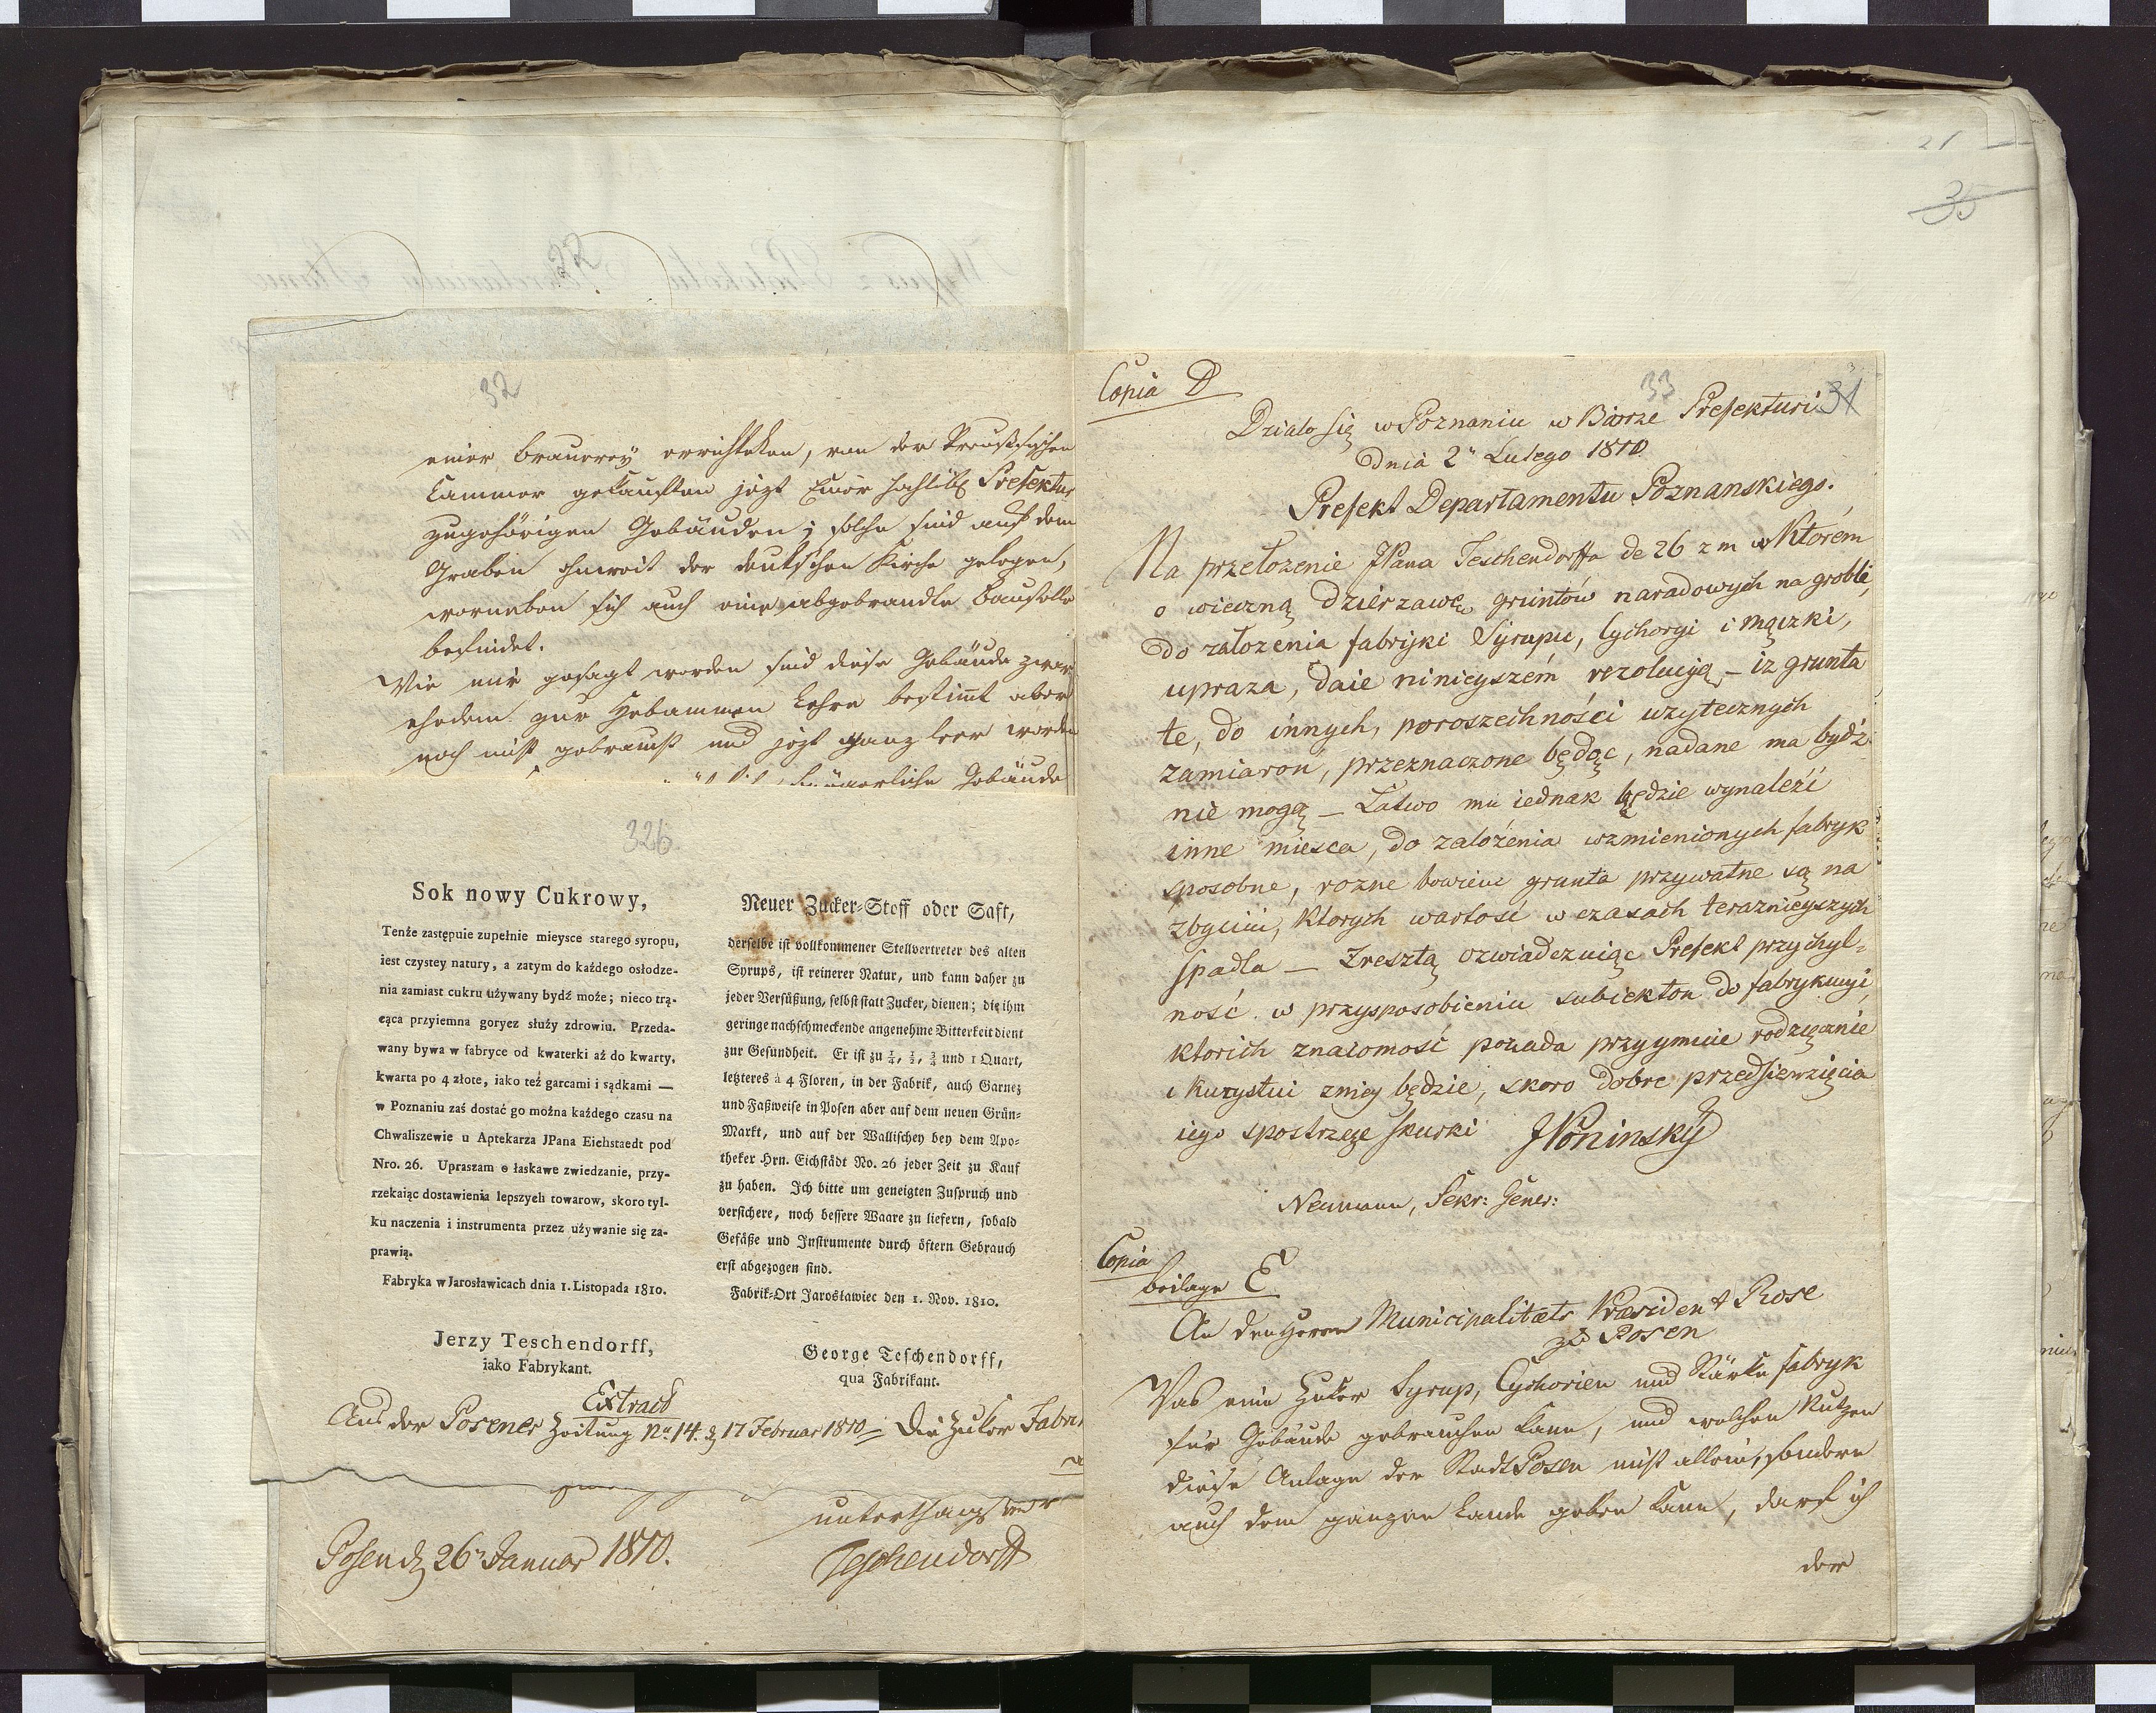 32
einer Brauerey errichteten, von der Preußischen
Cammer gekauften jezt Einer hochlöbl Prefektur
zugehörigen Gebäuden; solche sind auf dem
Graben ohnweit der deutschen Kirche gelegen,
worneben sich auch eine abgebrandte Baustelle
befindet.
Wie mir gesagt worden sind diese Gebäude zwar
ehedem zur Hebammen Lehre bestimt aber
noch nicht gebraucht und jezt ganz leer worden
Gebäude
326
Sok nowy Cukrowy,
Tenże zastępuie zupełnie mieysce starego syropu,
iest czystey natury, a zatym do każdego osłodze-
nia zamiast cukru używany bydź może; nieco trą-
cąca przyiemna gorycz służy zdrowiu. Przeda-
wany bywa w fabryce od kwaterki aż do kwarty,
kwarta po 4 złote, iako też garcami i sądkami —
w Poznaniu zaś dostać go można każdego czasu na
Chwaliszewie u Aptekarza JPana Eichstaedt pod
Nro. 26. Upraszam o łaskawe zwiedzanie, przy-
rzekaiąc dostawienia lepszych towarow, skoro tyl-
ku naczenia i instrumenta przez używanie się za-
prawią.
Fabryka w Jarosławicach dnia 1. Listopada 1810.
Jerzy Teschendorff,
iako Fabrykant.
Neuer Zucker-Stoff oder Saft,
derselbe ist vollkommener Stellvertreter des alten
Syrups, ist reinerer Natur, und kann daher zu
jeder Versüßung, selbst statt Zucker, dienen; die ihm
geringe nachschmeckende angenehme Bitterkeit dient
zur Gesundheit. Er ist zu ¼, ½, ¾ und 1 Quart,
letzteres à 4 Floren, in der Fabrik, auch Garnez
und Faßweise in Posen aber auf dem neuen Grün-
Markt, und auf der Wallischey bey dem Apo-
theker Hrn. Eichstädt No. 26 jeder Zeit zu Kauf
zu haben. Ich bitte um geneigten Zuspruch und
versichere, noch bessere Waare zu liefern, sobald
Gefäße und Instrumente durch öftern Gebrauch
erst abgezogen sind.
Fabrik-Ort Jarosławiec den 1. Nov. 1810.
George Teschendorff,
qua Fabrikant.
Extract
Aus der Posener Zeitung No 14. d 17 Februar 1810 = Die Zuker Fabri
unterthänigster
Posen d 26n Januar 1810.
Teschendorff
21
35
33
31
Copia D
Działo się w Poznaniu w Biorze Prefekturi
dnia 2n Lutego 1810
Prefekt Departamentu Poznanskiego.
Na przełożenie JPana Teschendorffa de 26 z m w Ktorem
o wieczną dzierzawę gruntów naradowych na grobli,
do założenia fabryki Syrupu, Cychoryi i mączki,
upraza, daie ninieyszém rezolucyą, – iz grunta
te, do innych, poroszechności uzytecznych
zamiarou, przeznaczone będąc, nadane ma bydź
nie mogą — Łatwo mu iednak będzie wynaleźć
inne miesca, do założenia wzmienionych fabryk
sposobne, rozne bowiem grunta prywatne są na
zbyciu, ktorych wartość w czasach teraznieyszych
spadła — Zresztą ozwiadczuiąc Prefekt przychyl=
ność w przysposobieniu subiektou do fabrykuyi
ktorich znaiomość posiada przyymuie rodzięcznie
i kuzystui zniey będzie, skoro dobre przedsiewzięcia
iego spostrzeże skutki JPoninsky
Neumann, Sekr: Gener:
Copia
Beilage E
An den Herrn Municipalitæts Præsident Rose
zu Posen
Was eine Zuker Syrup, Cychorien und Stärke fabryk
für Gebäude gebrauchen kann, und welchen Nutzen
diese Anlage der Stadt Posen nicht allein, sondern
auch dem ganzen Lande geben kann, darf ich
der